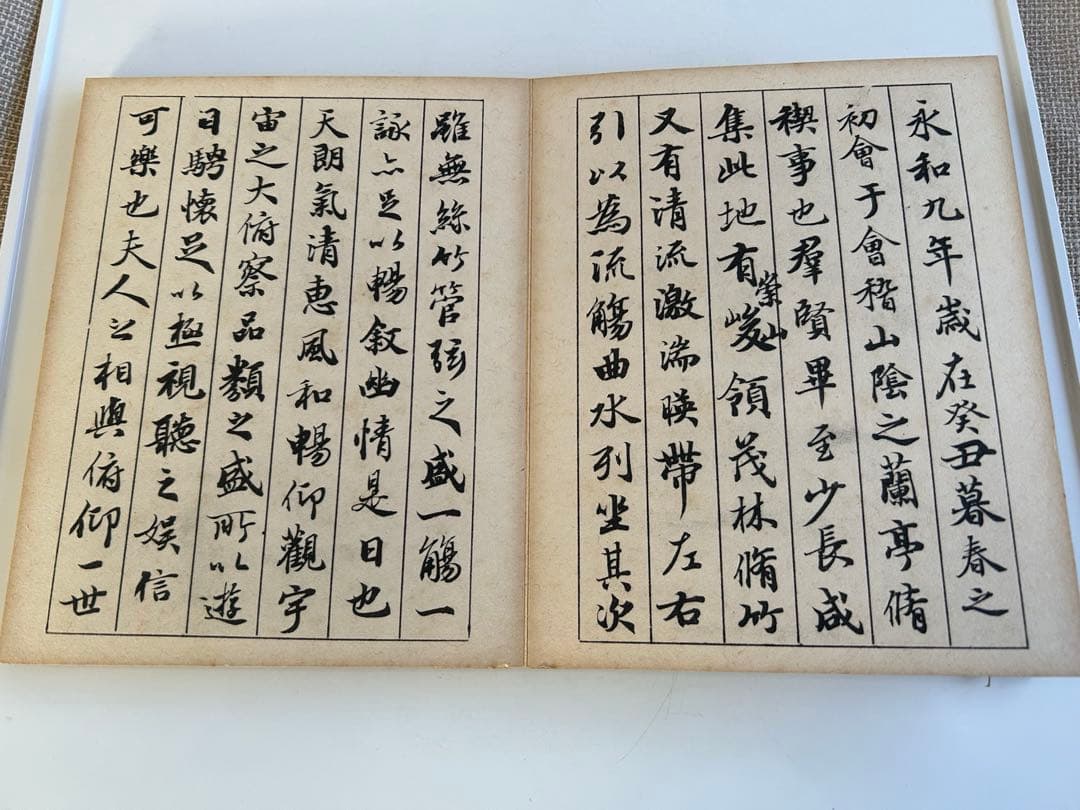 永和九年歲在癸丑暮春之
初會于會稽山陰之蘭亭脩
稧事也羣賢畢至少長咸
集此地有崇山峻領茂林脩竹
又有清流激湍暎帶左右
引以為流觴曲水列坐其次
雖無絲竹管弦之盛一觴一
詠亦足以暢敘幽情是日也
天朗氣清恵風和暢仰觀宇
宙之大俯察品類之盛所以遊
目騁懷足以極視聽之娛信
可樂也夫人之相與俯仰一世